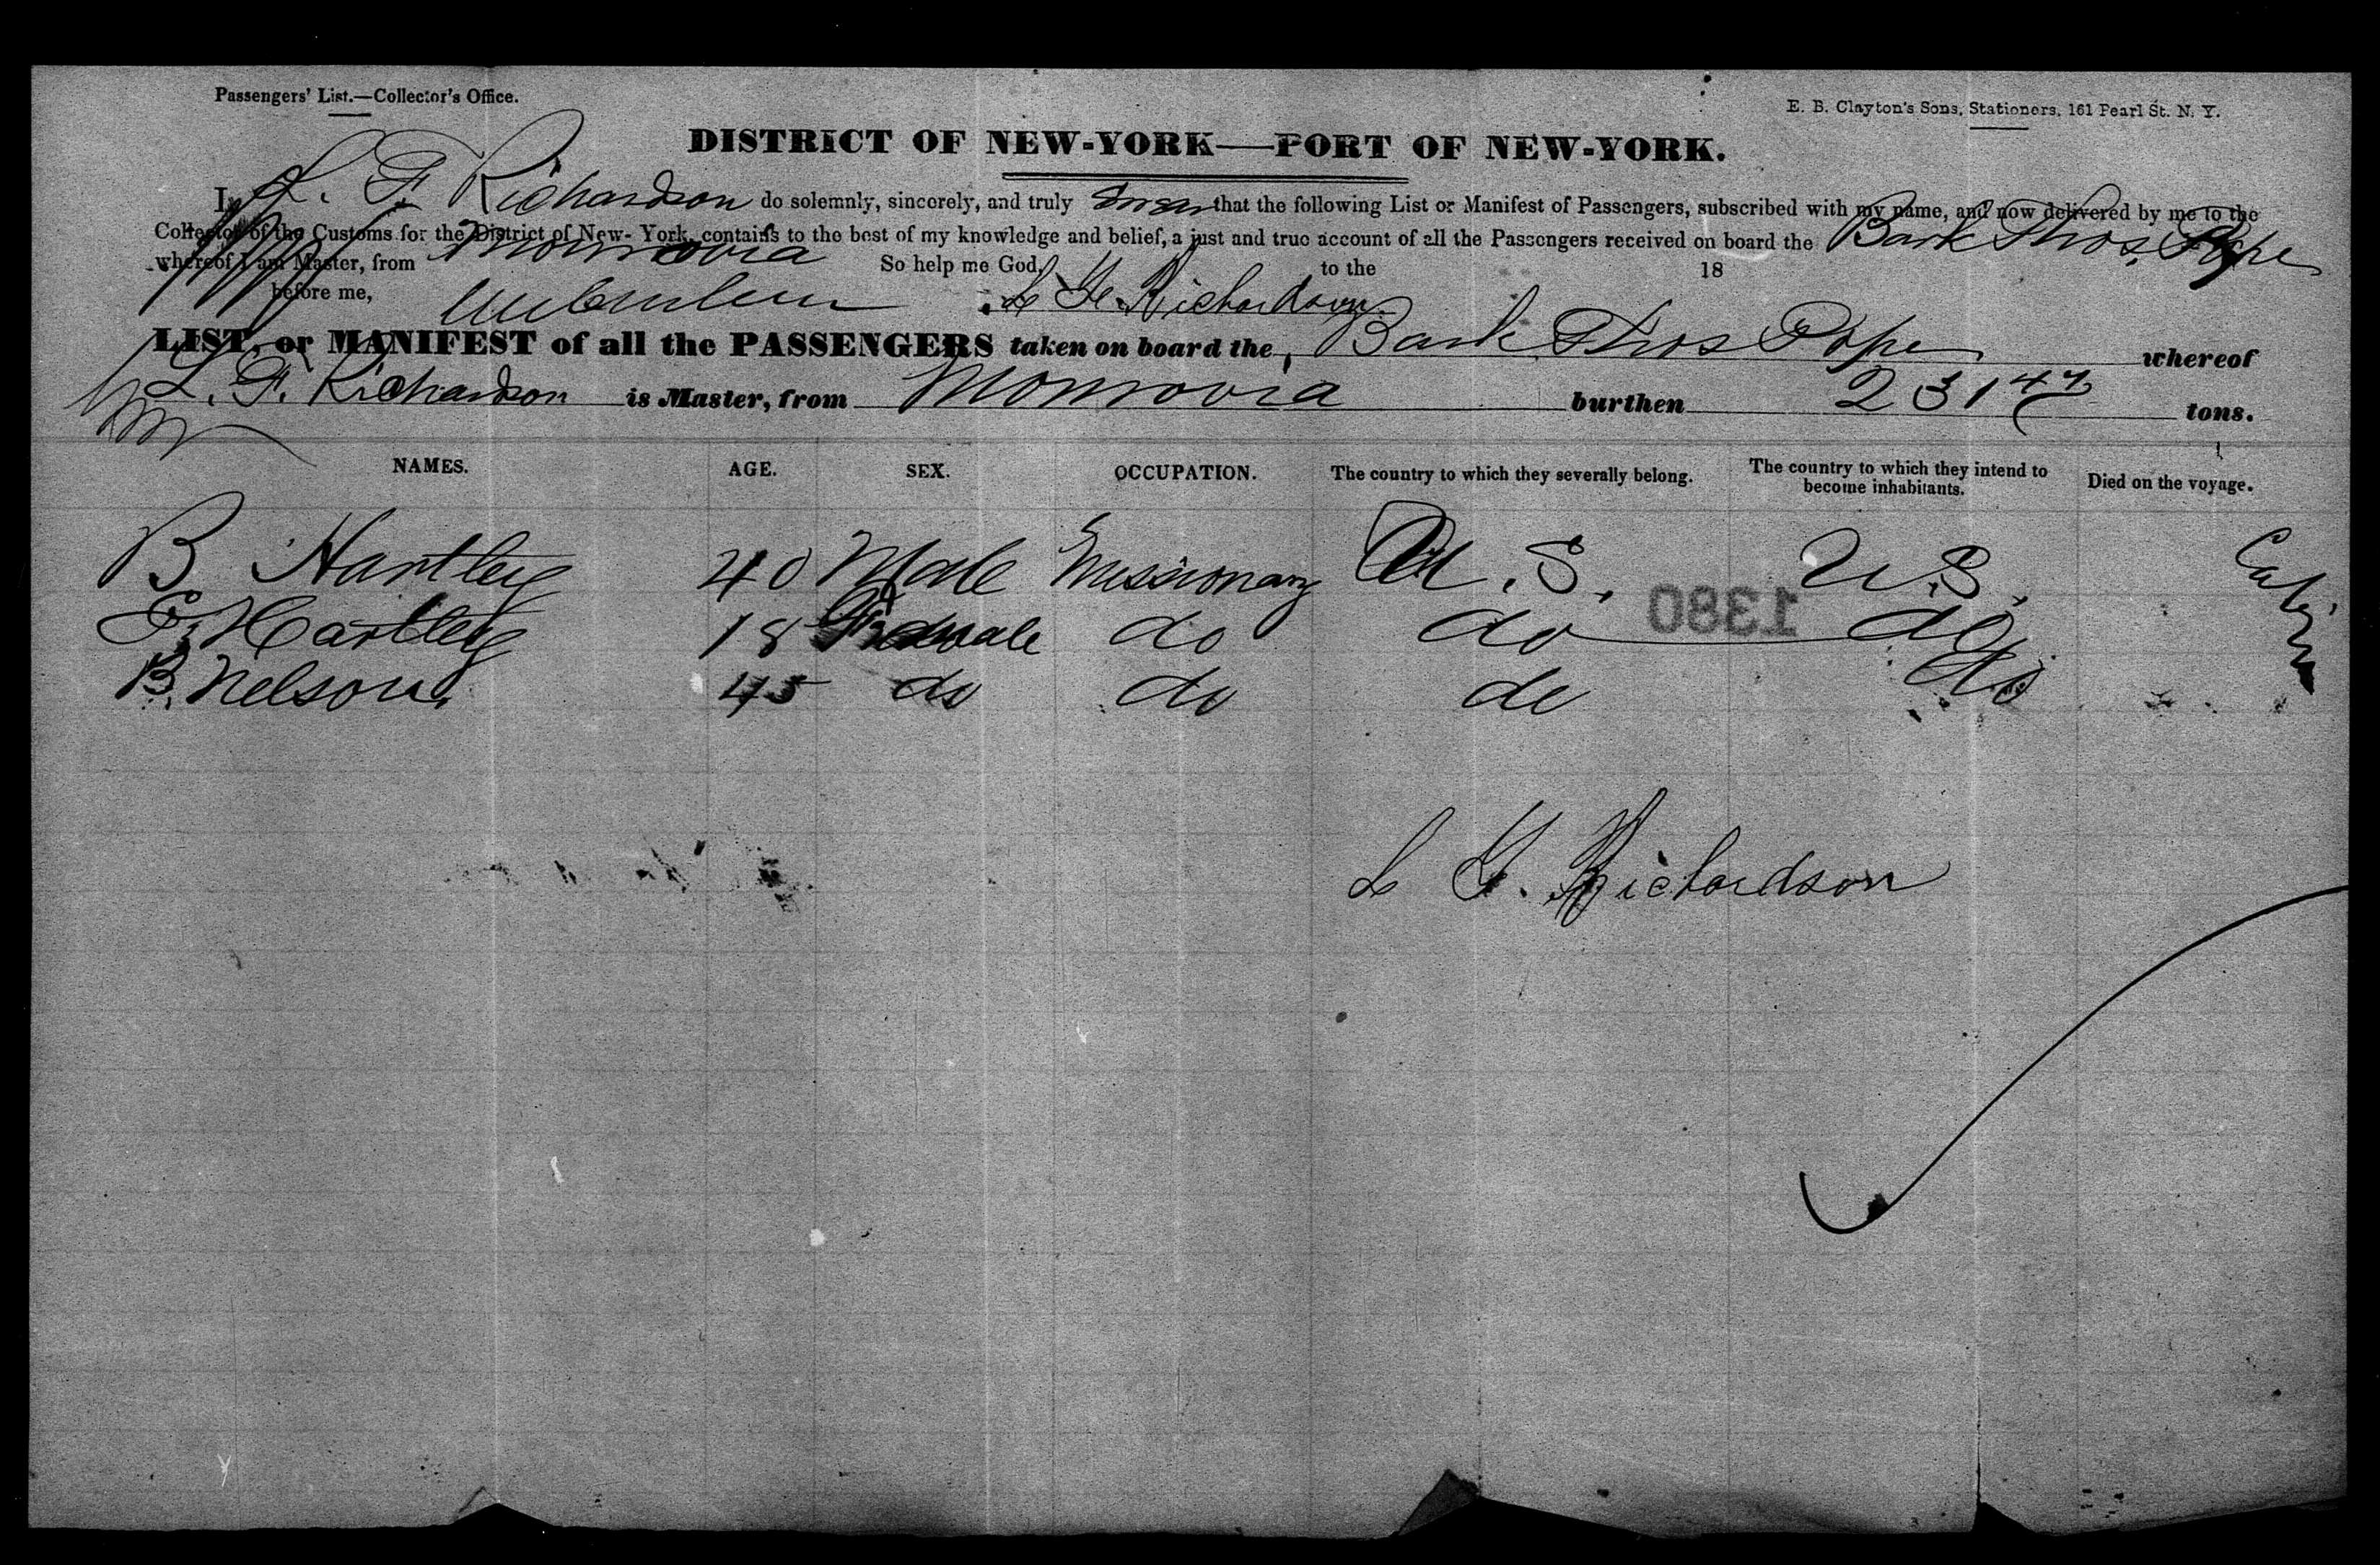 Passengers' List.—Collector's Office.
E. B. Clayton's Sons, Stationers, 161 Pearl St. N. Y.
DISTRICT OF NEW-YORK—PORT OF NEW-YORK.
I, L. F. Richardson do solemnly, sincerely, and truly swear that the following List or Manifest of Passengers, subscribed with my name, and now delivered by me to the
Collector of the Customs for the District of New-York, contains to the best of my knowledge and belief, a just and true account of all the Passengers received on board the Bark Thos. Pope
whereof I am Master, from Monrovia So help me God. to the 18
before me, L F. Richardson
LIST, or MANIFEST of all the PASSENGERS taken on board the Bark Thos Pope whereof
L. F. Richardson is Master, from Monrovia burthen 231 47 tons.
NAMES. AGE. SEX. OCCUPATION. The country to which they severally belong. The country to which they intend to become inhabitants. Died on the voyage.
B Hartley 40 Male Missionary U.S. U.S. Cabin
E. Hartley 18 Female do do do
1380
B. Nelson. 45 do do do do
L F. Richardson